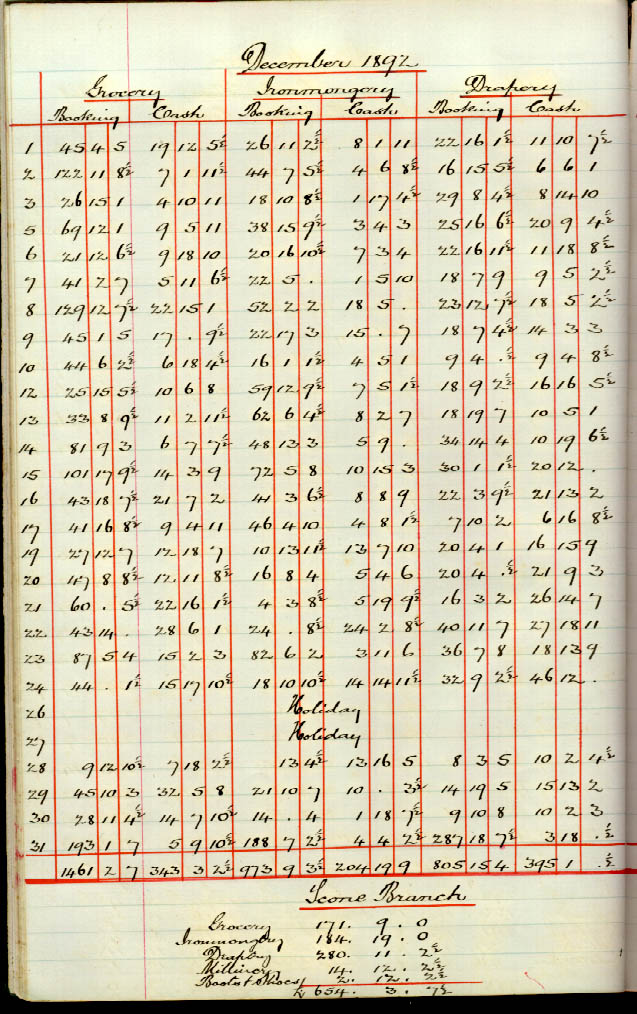 December 1892
Grocery Ironmongery Drapery
Booking Cash Booking Cash Booking Cash
1 45 4 5 19 12 5½ 26 11 2½ 8 1 11 22 16 1½ 11 10 7½
2 122 11 8½ 7 1 11½ 44 7 5½ 4 6 8½ 16 15 5½ 6 6 1
3 26 15 1 4 10 11 18 10 8½ 1 17 4½ 29 8 4½ 8 14 10
5 69 12 1 9 5 11 38 15 9½ 3 4 3 25 16 6½ 20 9 4½
6 21 12 6½ 9 18 10 20 16 10½ 7 3 4 22 16 11½ 11 18 8½
7 41 2 7 5 11 6½ 22 5 . 1 5 10 18 7 9 9 5 2½
8 129 12 7½ 22 15 1 52 2 2 18 5 . 23 12 7½ 18 5 2½
9 45 1 5 17 . 9½ 22 17 3 15 . 7 18 7 4½ 14 3 3
10 44 6 2½ 6 18 4½ 16 1 1½ 4 5 1 9 4 .½ 9 4 8½
12 25 15 5½ 10 6 8 59 12 9½ 7 5 1½ 18 9 2½ 16 16 5½
13 33 8 9½ 11 2 11½ 62 6 4½ 8 2 7 18 19 7 10 5 1
14 81 9 3 6 7 7½ 48 13 3 5 9 . 34 14 4 10 19 6½
15 101 17 9½ 14 3 9 72 5 8 10 15 3 30 1 1½ 20 12 .
16 43 18 7½ 21 7 2 41 3 6½ 8 8 9 22 3 9½ 21 13 2
17 41 16 8½ 9 4 11 46 4 10 4 8 1½ 7 10 2 6 16 8½
19 27 12 7 12 18 7 10 13 11½ 13 7 10 20 4 1 16 15 9
20 47 8 8½ 12 11 8½ 16 8 4 5 4 6 20 4 .½ 21 9 3
21 60 . 5½ 22 16 1½ 4 3 8½ 5 19 9½ 16 3 2 26 14 7
22 43 14 . 28 6 1 24 . 8½ 24 2 8½ 40 11 7 27 18 11
23 87 5 4 15 2 3 82 6 2 3 11 6 36 7 8 18 13 9
24 44 . 1½ 15 17 10½ 18 10 10½ 14 14 11½ 32 9 2½ 46 12 .
26 Holiday
27 Holiday
28 9 12 10½ 7 18 2½ 13 4½ 13 16 5 8 3 5 10 2 4½
29 45 10 3 32 5 8 21 10 7 10 . 3½ 14 19 5 15 13 2
30 28 11 4½ 14 7 10½ 14 . 4 1 18 7½ 9 10 8 10 2 3
31 193 1 7 5 9 10½ 188 7 2½ 4 4 2½ 287 18 7½ 3 18 .½
1461 2 7 343 3 2½ 973 9 3½ 204 19 9 805 15 4 395 1 .½
Scone Branch
Grocery 171. 9. 0
Ironmongery 184. 19. 0
Drapery 280. 11. 2½
Millinery 14. 12. 2½
Boots & Shoes 2. 12. 2½
654. 3. 7½